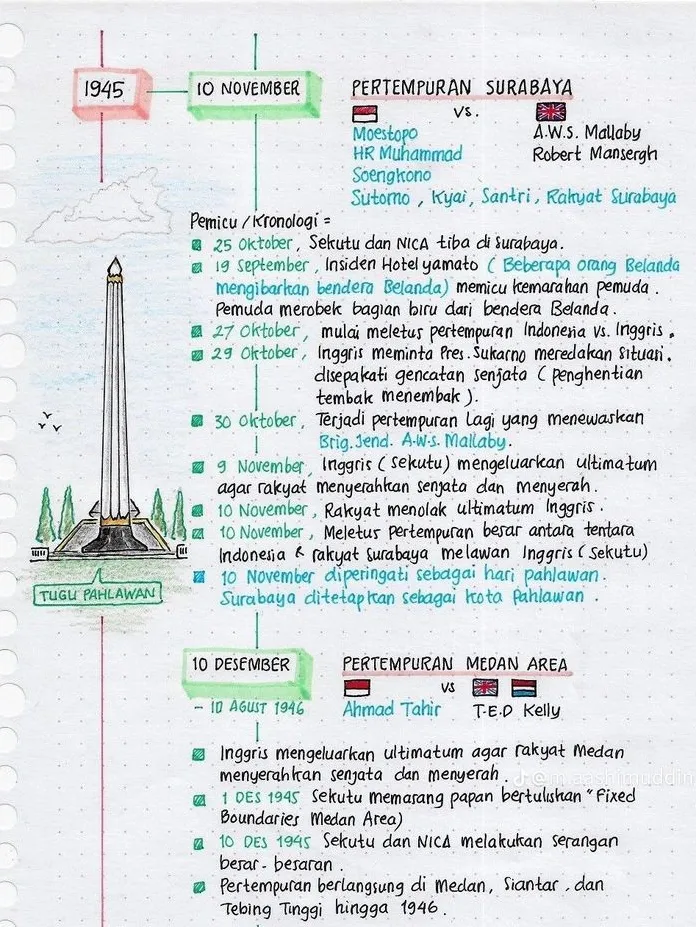 1945
10 NOVEMBER
PERTEMPURAN SURABAYA
VS.
Moestopo
HR Muhammad
Soengkono
Sutomo, Kyai, Santri, Rakyat Surabaya
A.W.S. Mallaby
Robert Mansergh
Pemicu / Kronologi =
25 Oktober, Sekutu dan NICA tiba di Surabaya.
19 September, Insiden Hotel yamato ( Beberapa orang Belanda
mengibarkan bendera Belanda) memicu kemarahan pemuda.
Pemuda merobek bagian biru dari bendera Belanda.
27 Oktober, mulai meletus pertempuran Indonesia vs. Inggris.
29 Oktober, Inggris meminta Pres. Sukarno meredakan situasi.
disepakati gencatan senjata ( penghentian
tembak menembak ).
30 Oktober, Terjadi pertempuran lagi yang menewaskan
Brig. Jend. A.W.S. Mallaby.
9 November, Inggris ( Sekutu) mengeluarkan ultimatum
agar rakyat menyerahkan senjata dan menyerah.
10 November, Rakyat menolak ultimatum Inggris.
10 November, Meletus Pertempuran besar antara tentara
Indonesia & rakyat Surabaya melawan Inggris ( Sekutu)
10 November diperingati sebagai hari pahlawan.
Surabaya ditetapkan sebagai kota pahlawan.
TUGU PAHLAWAN
10 DESEMBER
- 10 AGUST 1946
PERTEMPURAN MEDAN AREA
VS
Ahmad Tahir
T.E.D Kelly
Inggris mengeluarkan ultimatum agar rakyat Medan
menyerahkan senjata dan menyerah.
1 DES 1945 Sekutu memasang papan bertuliskan "Fixed
Boundaries Medan Area)
10 DES 1945 Sekutu dan NICA melakukan serangan
besar-besaran.
Pertempuran berlangsung di Medan, Siantar, dan
Tebing Tinggi hingga 1946.